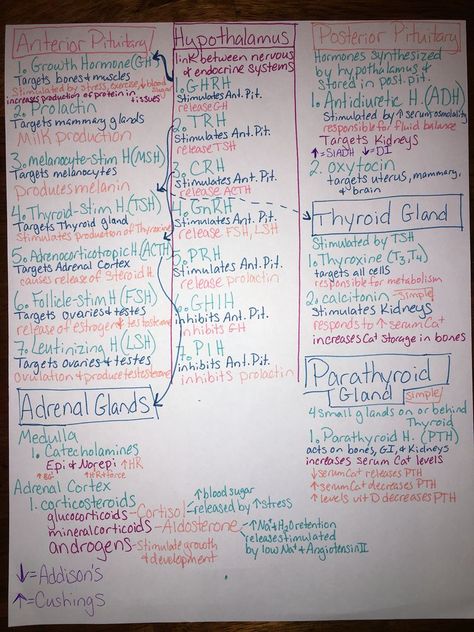 Anterior Pituitary
1. Growth Hormone (GH)
Targets bones & muscles
Stimulated by stress, exercise, & ↓ blood sugar
increases production of protein in tissues
2. Prolactin
Targets mammary glands
Milk Production
3. melanocyte-stim H (MSH)
Targets melanocytes
Produces melanin
4. Thyroid-stim H (TSH)
Targets Thyroid gland
Stimulates production of Thyroxine
5. Adrenocorticotropic H (ACTH)
Targets Adrenal Cortex
causes release of Steroid H
6. Follicle-stim H (FSH)
Targets ovaries & testes
release of estrogen & testosterone
7. Leutinizing H (LSH)
Targets ovaries & testes
Ovulation & produce testosterone
Hypothalamus
link between nervous
& endocrine systems
1. GHRH
Stimulates Ant. Pit.
release GH
2. TRH
Stimulates Ant. Pit.
release TSH
3. CRH
Stimulates Ant. Pit.
release ACTH
4. GnRH
Stimulates Ant. Pit.
release FSH, LSH
5. PRH
Stimulates Ant. Pit.
release prolactin
6. GHIH
inhibits Ant. Pit.
inhibits GH
7. PIH
inhibits Ant. Pit.
inhibits prolactin
Posterior Pituitary
Hormones synthesized
by hypothalamus &
stored in post. pit.
1. Antidiuretic H. (ADH)
Stimulated by ↑ serum osmolality
responsible for fluid balance
Targets Kidneys
↑=SIADH ↓=DI
2. oxytocin
targets uterus, mammary,
& brain
Thyroid Gland
Stimulated by TSH
1. Thyroxine (T3, T4)
targets all cells
responsible for metabolism
2. calcitonin - simple
Stimulates Kidneys
responds to ↑ serum Ca+
increases Ca+ storage in bones
Parathyroid
Gland simple
4 small glands on or behind
Thyroid
1. Parathyroid H. (PTH)
acts on bones, GI, & Kidneys
increases serum Ca+ levels
↓ serum Ca+ releases PTH
↑ serum Ca+ decreases PTH
↑ levels vit D decreases PTH
Adrenal Glands
Medulla
1. Catecholamines
Epi & Norepi ↑HR
↑BG ↑HR+force
Adrenal Cortex
1. corticosteroids
glucocorticoids - Cortisol
↑ blood sugar
released by ↑ stress
mineralcorticoids - Aldosterone
↑ Na+ & H2O retention
release stimulated
by low Na+ & Angiotensin II
androgens - stimulate growth
& development
↓ = Addison's
↑ = Cushings